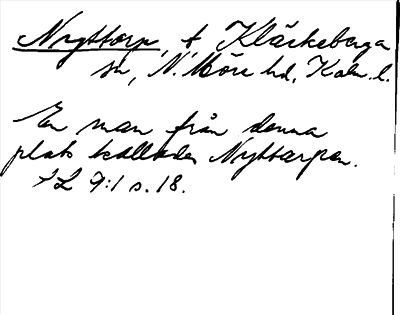 Nyttorp, t Kläckeberga
sn, N. Möre hd, Kalm. l.
En man från denna
plats kallades Nyttarpen.
SL 9:1 s. 18.